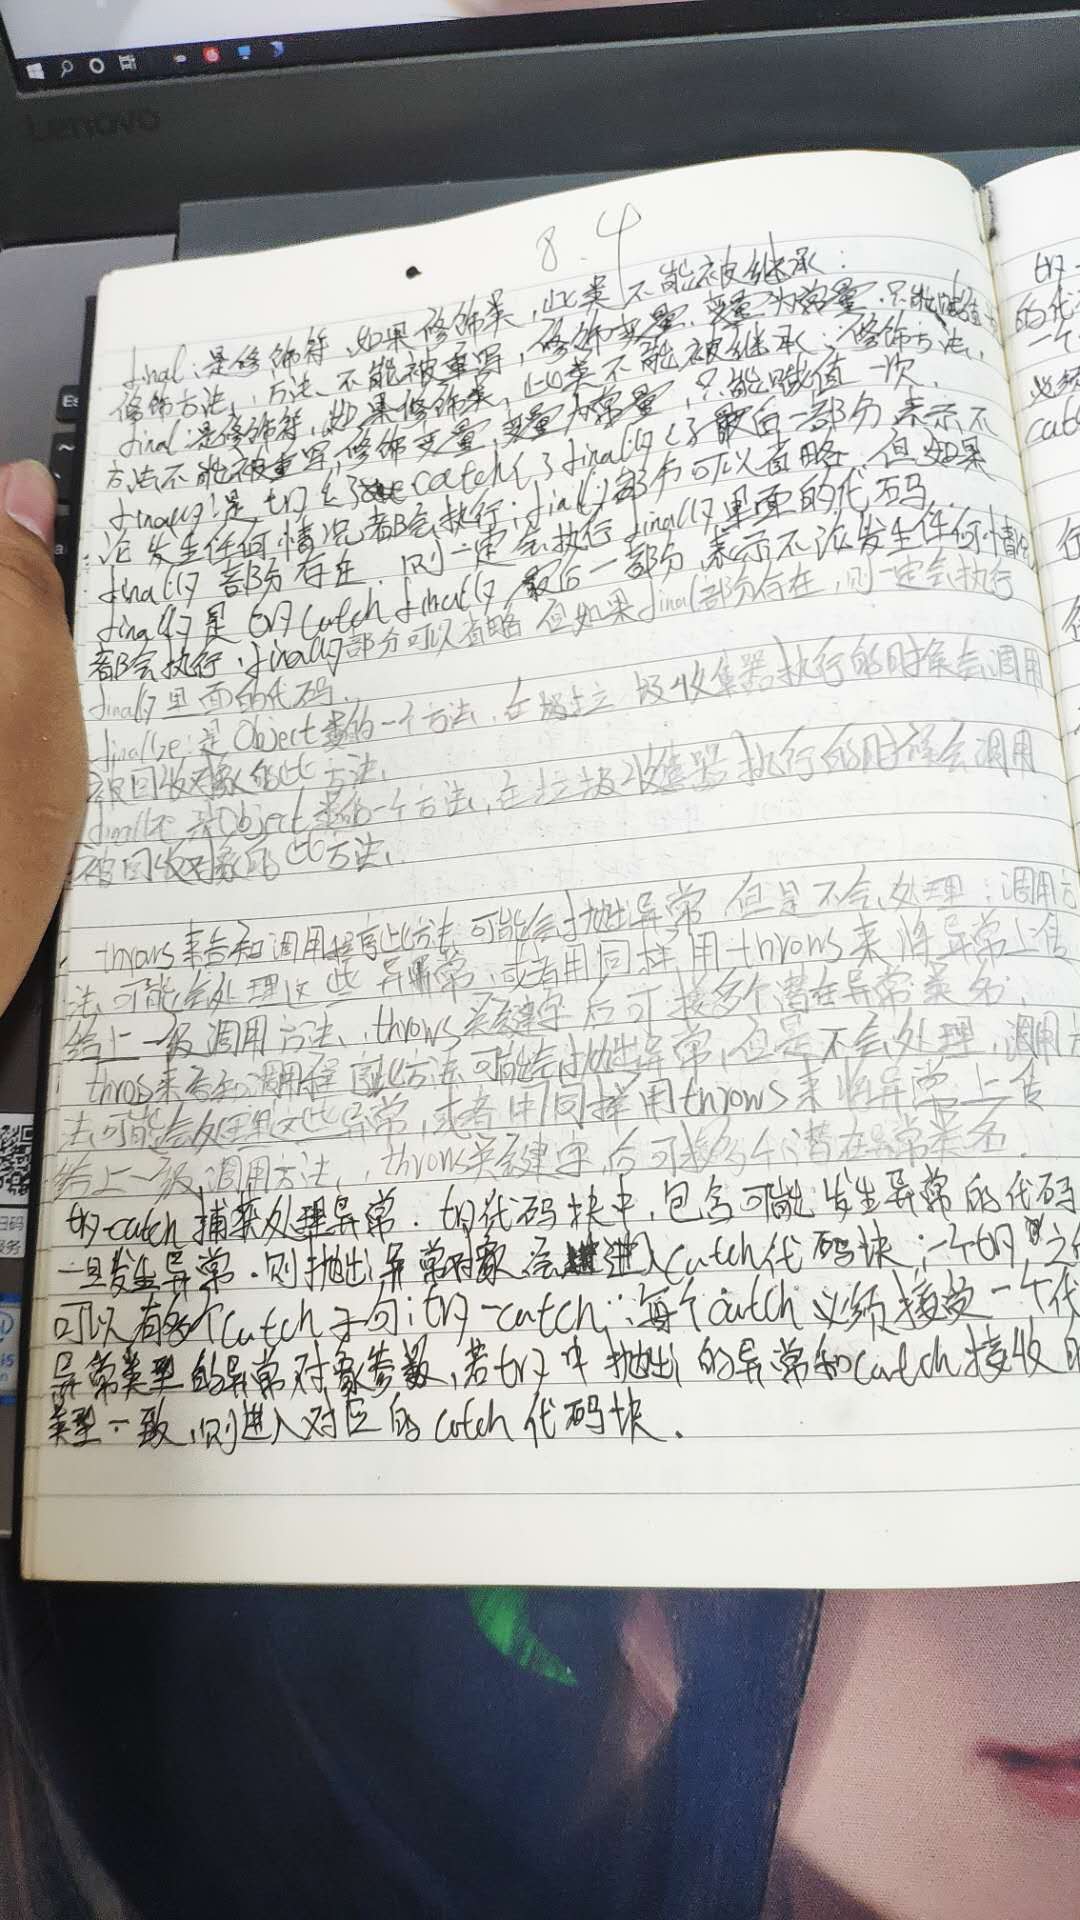 Lenovo
8.4
final:是修饰符,如果修饰类,此类不能被继承:
修饰方法,方法不能被重写,修饰变量,变量为常量.只能赋值
final:是修饰符,如果修饰类,此类不能被继承;修饰方法,
方法不能被重写,修饰变量,变量为常量,只能赋值一次.
finally:是try{}catch{}finally{}最后一部分表示不
论发生任何情况都会执行;finally部分可以省略,但如果
finally部分存在.则一定会执行finally里面的代码.
finally是try catch finally最后一部分,表示不论发生任何情况
都会执行,finally部分可以省略但如果final部分存在,则一定会执行
finally里面的代码.
finalize:是Object类的一个方法,在垃圾收集器执行的时候会调用
被回收对象的此方法.
是Object类的一个方法,在垃圾收集器执行的时候会调用
被回收对象的此方法.
throws来告知调用程序此方法可能会抛出异常但是不会处理;调用方
法可能会处理这些异常,或者用同样用throws来将异常上传
给上一级调用方法,throws关键字后可接多个潜在异常类名.
thros来告知调用程序此方法可能会抛出异常,但是不会处理,调用方
法可能会处理这些异常,或者用同样用throws来将异常上传
给上一级调用方法,throws关键字后可接多个潜在异常类名.
try-catch捕获处理异常.try代码块中,包含可能发生异常的代码
一旦发生异常.则抛出异常对象会进入catch代码块;一个try之
可以有多个catch子句;try-catch:每个catch必须接受一个代
异常类型的异常对象参数,若try中抛出的异常和catch接收的
类型一致,则进入对应的catch代码块.
的代
一个
必须
catc
行